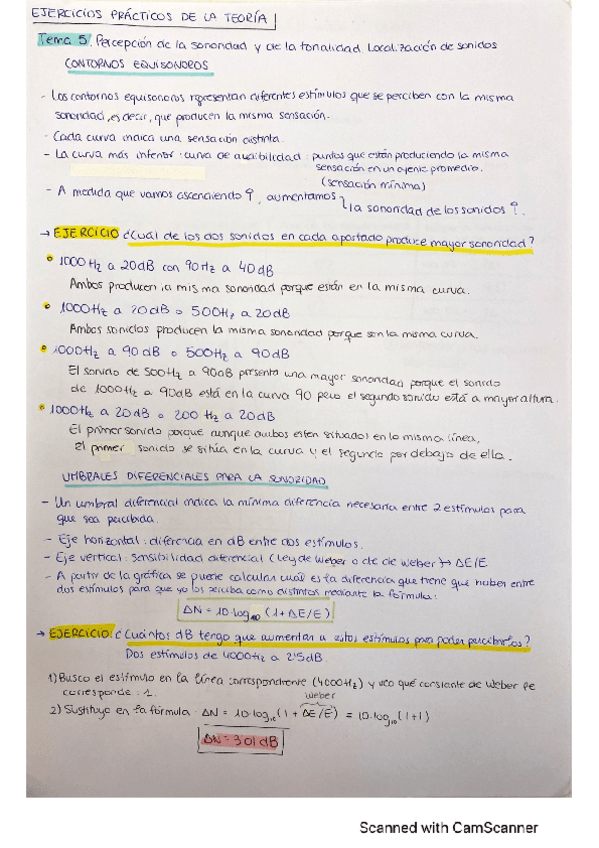 EJERCICIOS PRÁCTICOS DE LA TEORÍA
Tema 5. Percepción de la sonoridad y de la tonalidad Localización de sonidos
CONTORNOS EQUISONOROS
- Los contornos equisonoros representan diferentes estímulos que se perciben con la misma
sonoridad, es decir, que producen la misma sensación.
- Cada curva indica una sensación distinta.
- La curva más inferior: curva de audibilidad: puntos que están produciendo la misma
sensación en un oyente promedio.
(sensación mínima)
- A medida que vamos ascendiendo ↑, aumentamos
la sonoridad de los sonidos ↑.
→ EJERCICIO ¿Cuál de los dos sonidos en cada apartado produce mayor sonoridad?
• 1000Hz a 20dB con 90Hz a 40dB
Ambos producen la misma sonoridad porque están en la misma curva.
• 1000Hz a 20dB o 500Hz a 20dB
Ambos sonidos producen la misma sonoridad porque son la misma curva.
• 1000Hz a 90dB o 500Hz a 90dB
El sonido de 500Hz a 90dB presenta una mayor sonoridad porque el sonido
de 1000Hz a 90dB está en la curva 90 pero el segundo sonido está a mayor altura.
• 1000Hz a 20dB o 200Hz a 20dB
El primer sonido porque aunque ambos esten situados en la misma línea,
el primer sonido se sitúa en la curva y el segundo por debajo de ella.
UMBRALES DIFERENCIALES PARA LA SONORIDAD
- Un umbral diferencial indica la mínima diferencia necesaria entre 2 estímulos para
que sea percibida.
- Eje horizontal: diferencia en dB entre dos estímulos.
- Eje vertical: sensibilidad diferencial (Ley de Weber o cte de Weber) → ΔE/E.
- A partir de la gráfica se puede calcular cuál es la diferencia que tiene que haber entre
dos estímulos para que yo los perciba como distintos mediante la fórmula:
ΔN = 10·log10 (1+ΔE/E)
→ EJERCICIO: ¿Cuántos dB tengo que aumentar a estos estímulos para poder percibirlos?
Dos estímulos de 4000Hz a 2'5dB.
1) Busco el estímulo en la línea correspondiente (4000Hz) y veo qué constante de Weber le
corresponde: 1.
Weber
2) Sustituyo en la fórmula: ΔN = 10·log10 (1+ΔE/E) = 10·log10 (1+1)
ΔN = 3'01dB
Scanned with CamScanner